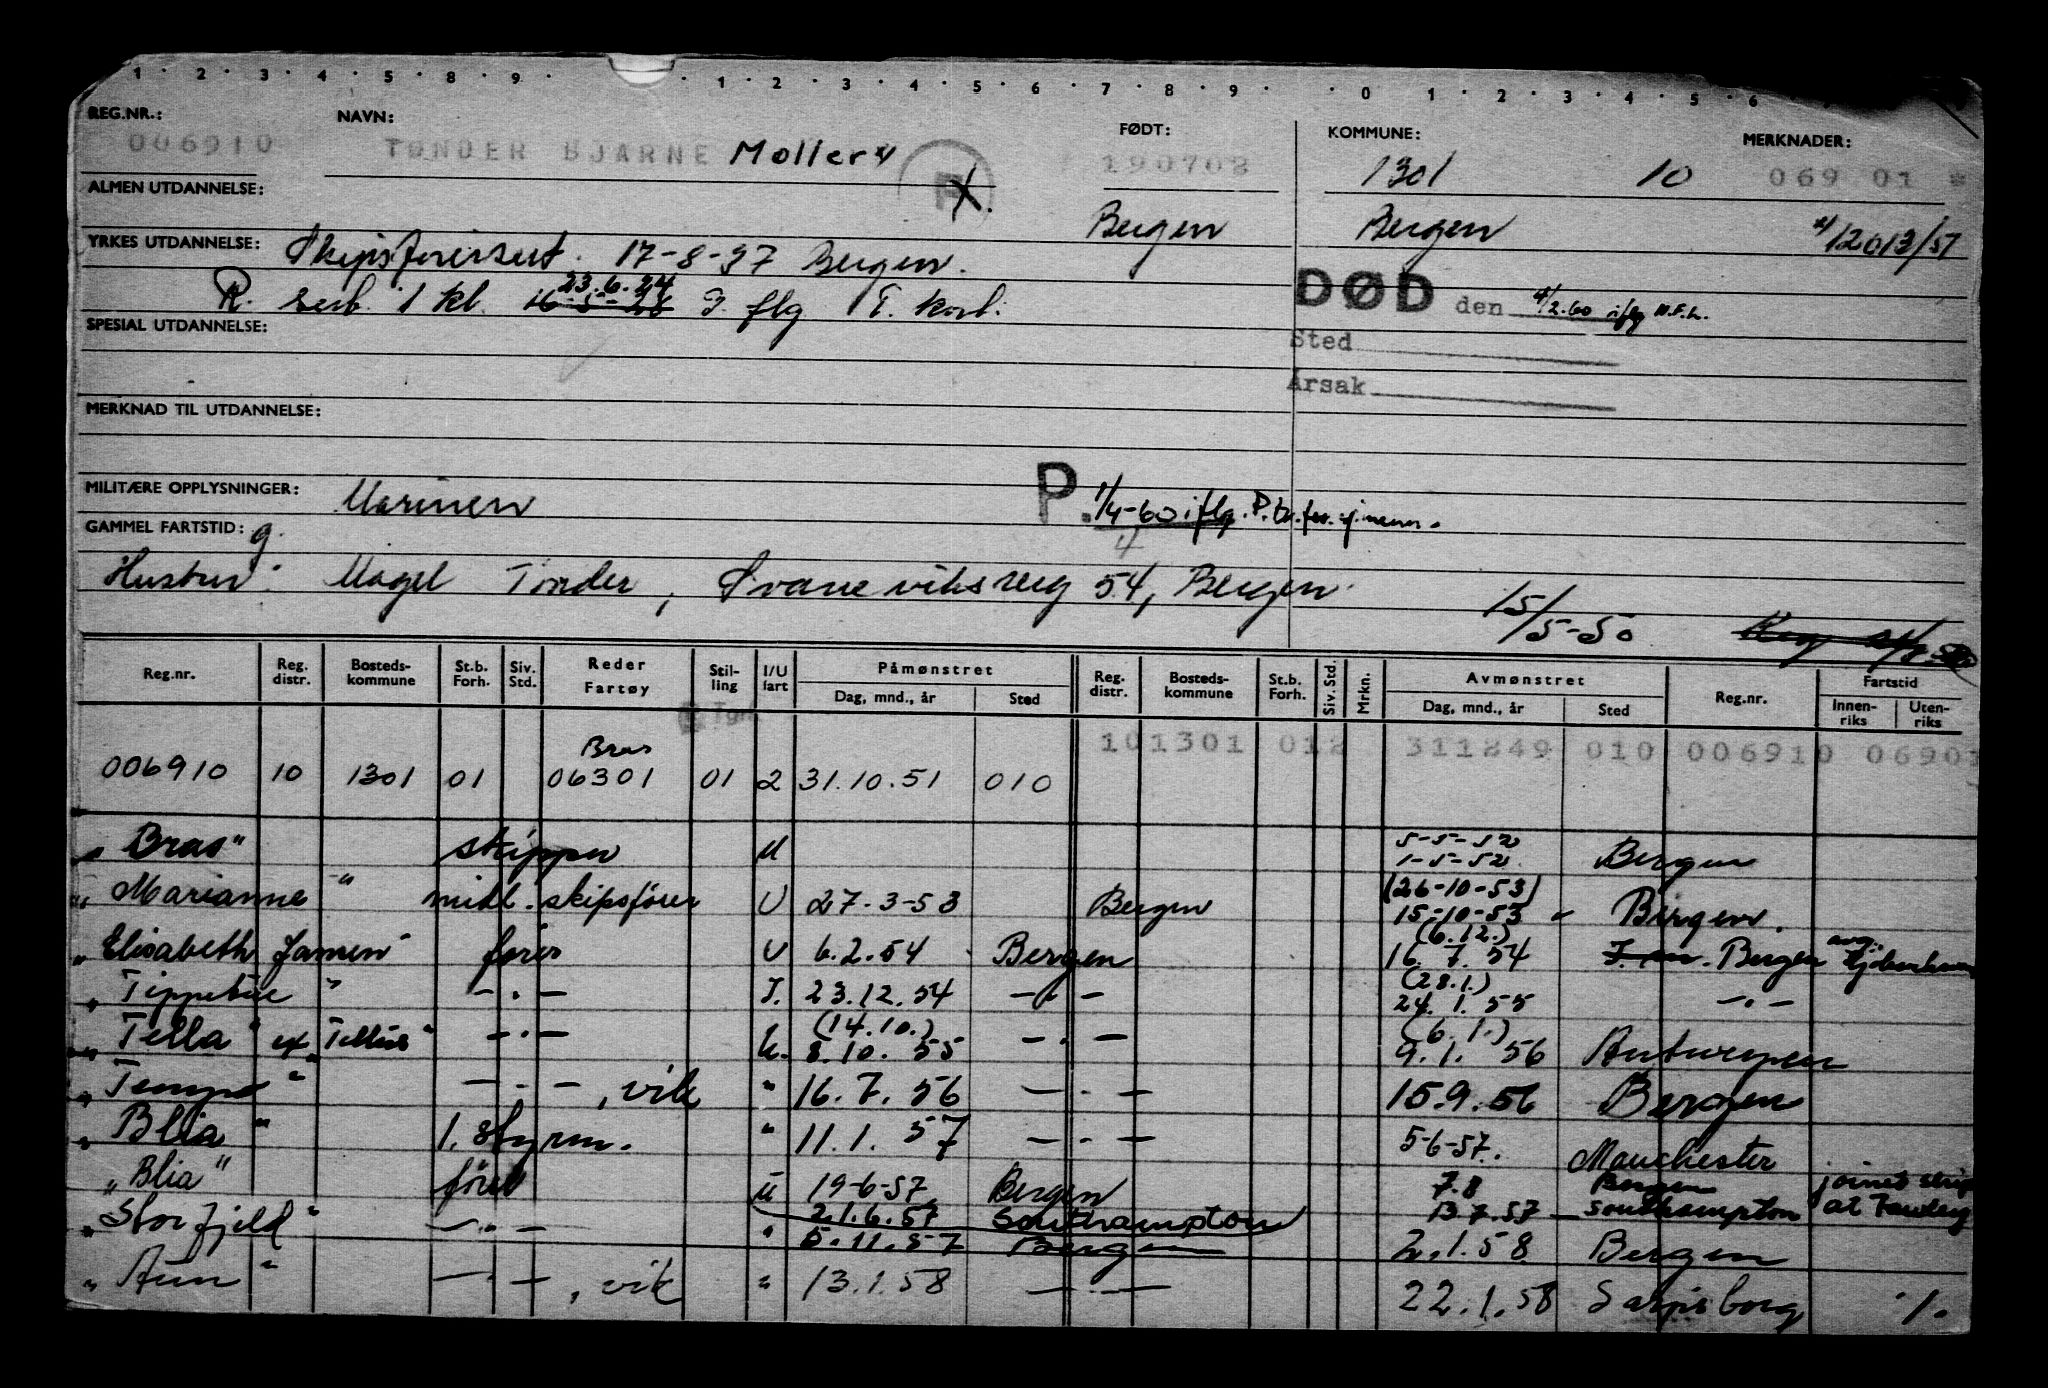 1 · 2 · 3 · 4 · 5 · 8 · 9 · · 1 · 2 · 3 · 4 · 5 · 6 · 7 · 8 · 9 · · 0 · 1 · 2 · 3 · 4 · 5 · 6
REG.NR.: NAVN: FØDT: KOMMUNE: MERKNADER:
006910 TØNDER BJARNE Moller x/ F 190708 1301 10 069 01 *
ALMEN UTDANNELSE: Bergen Bergen x/12013/57
YRKES UTDANNELSE: Skipsførersert. 17-8-37 Bergen.
R. serb. 1 kl. 16-5-28 23.6.24 I. flg T. kort.
DØD den 4/2.60 iflg N.F.L.
SPESIAL UTDANNELSE:
Sted
Årsak
MERKNAD TIL UTDANNELSE:
MILITÆRE OPPLYSNINGER: Marinen P. 1/4-60 iflg. P.tr. for sjømenn.
GAMMEL FARTSTID: g.
Hustru: Magel Tønder, Svaneviksveig 54, Bergen
15/5-50
Reg.nr. Reg. distr. Bosteds-kommune St.b. Forh. Siv. Std. Reder Fartøy Stil-ling I/U fart Påmønstret Dag, mnd., år Sted Reg. distr. Bosteds-kommune St.b. Forh. Siv. Std. Mrkn. Avmønstret Dag, mnd., år Sted Reg.nr. Fartstid Innen-riks Uten-riks
101301 012 311249 010 006910 06901
Bras
006910 10 1301 01 06301 01 2 31.10.51 010
"Bras" skipper U 5-5-52 1-5-52 Bergen
"Marianne" midl. skipsfører U 27.3-53 Bergen (26-10-53) 15-10-53 Bergen.
"Elisabeth Jansen" fører U 6.2.54 Bergen (6.12.) 16.7.54 Bergen
"Tippetue" -.- I. 23.12.54 -.- (28.1.) 24.1.55 -.-
"Tella" ex "Tellus" -.- U. (14.10.) 8.10.55 -.- (6.1.) 9.1.56 Antwerpen
"Tempo" -.-, vik " 16.7.56 -.- 15.9.56 Bergen
"Blia" 1. styrm. " 11.1.57 -.- 5-6-57. Manchester
"Blia" fører U 19-6-57 Bergen 7.8 Bergen joinet skip
21.6.57 Southampton 13.7.57 Southampton at Fawley
"Storfjeld" -.- " 5.11.57 Bergen 2.1.58 Bergen
"Aun" -.-, vik " 13.1.58 -.- 22.1.58 Sarpsborg ./.